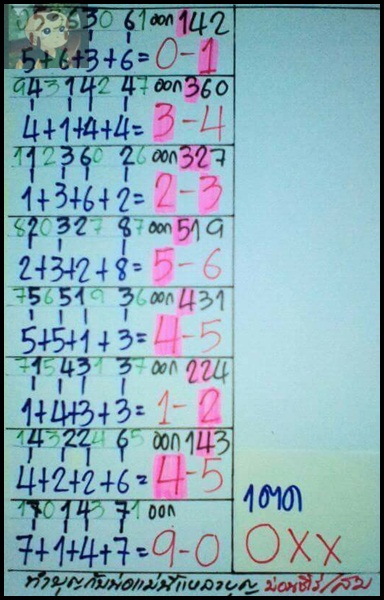 630 61 ออก 142
5+6+3+6= 0-1
943142 47 ออก 360
4+1+4+4= 3-4
112360 26 ออก 327
1+3+6+2= 2-3
820327 87 ออก 519
2+3+2+8= 5-6
756519 36 ออก 431
5+5+1+3= 4-5
715431 37 ออก 224
1+4+3+3= 1-2
143224 65 ออก 143
4+2+2+6= 4-5
170143 71 ออก
7+1+4+7= 9-0
1ตด
0XX
ทำบุญกับพ่อแม่